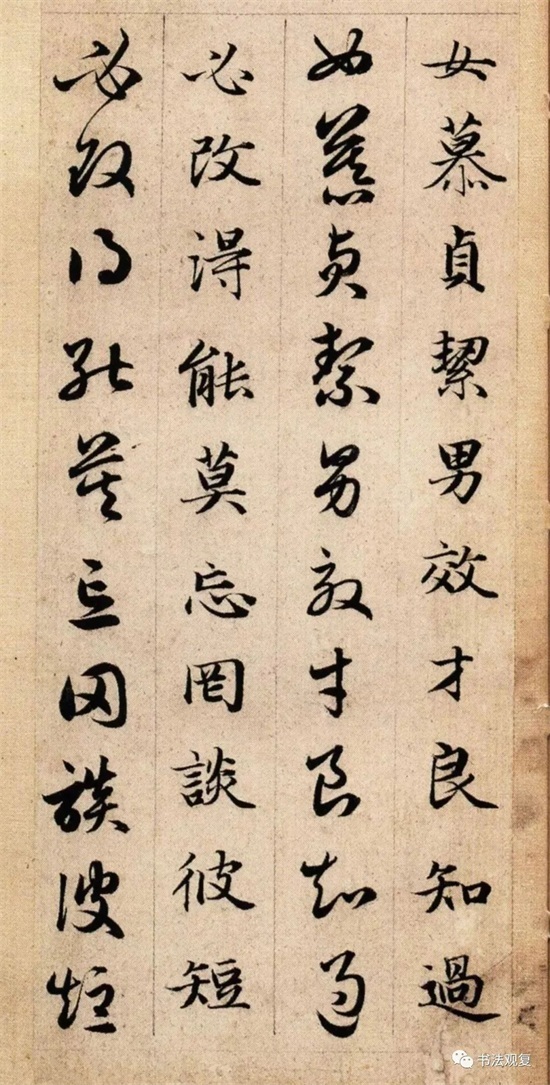 女慕貞絜男效才良知過
女慕貞絜男效才良知過
必改得能莫忘罔談彼短
必改得能莫忘罔談彼短
书法观复